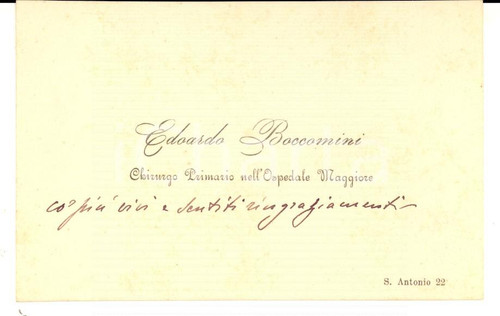 Edoardo Boccomini
Chirurgo Primario nell'Ospedale Maggiore
co' più vivi e sentiti ringraziamenti
S. Antonio 22